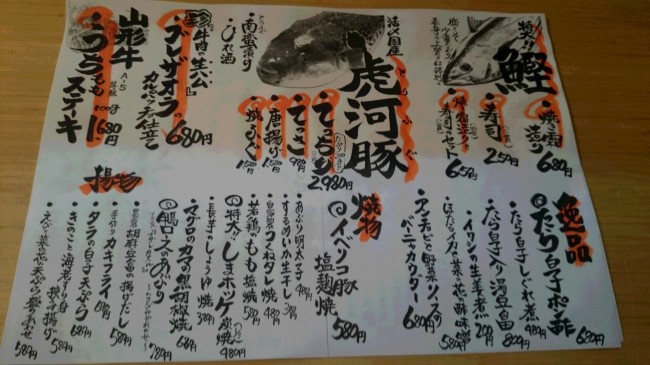 鰹
焼き霜造り 680円
寿司 250円
焼き霜造りと寿司セット 650円
活〆国産
虎河豚
とらふぐ
てっちり 2,980円
てっさ 980円
唐揚げ 1,580円
焼ふぐ 1,580円
南蛮漬け
ひれ酒
牛肉の生ハム
ブレザオラの
カルパッチョ仕立て 680円
山形牛
A-5
うちもも
100g
ステーキ 1,680円
逸品
たら白子ポン酢 680円
たら白子しぐれ煮 480円
たら白子入り湯豆腐 800円
イワシの生姜煮 200円
ほたるイカと菜の花の酢味噌
アンチョビの鮮菜ソース
バーニャカウダー 680円
焼物
イベリコ豚
塩麹焼 580円
あぶり明太子
するめいか生干し
自家製つくねタレ焼 480円
若鶏のもも塩焼 580円
特大!!しまホッケ炭焼 980円
長芋のしょうゆ焼 380円
マグロのカマの黒胡椒焼 680円
鴨ロースのあぶり 780円
揚物
自家製胡麻豆腐の揚げだし
手作りカキフライ
タラの白子天ぷら 680円
きのこと海老すり身挟み揚げ 580円
えびと菜の花天ぷら盛り合わせ 580円